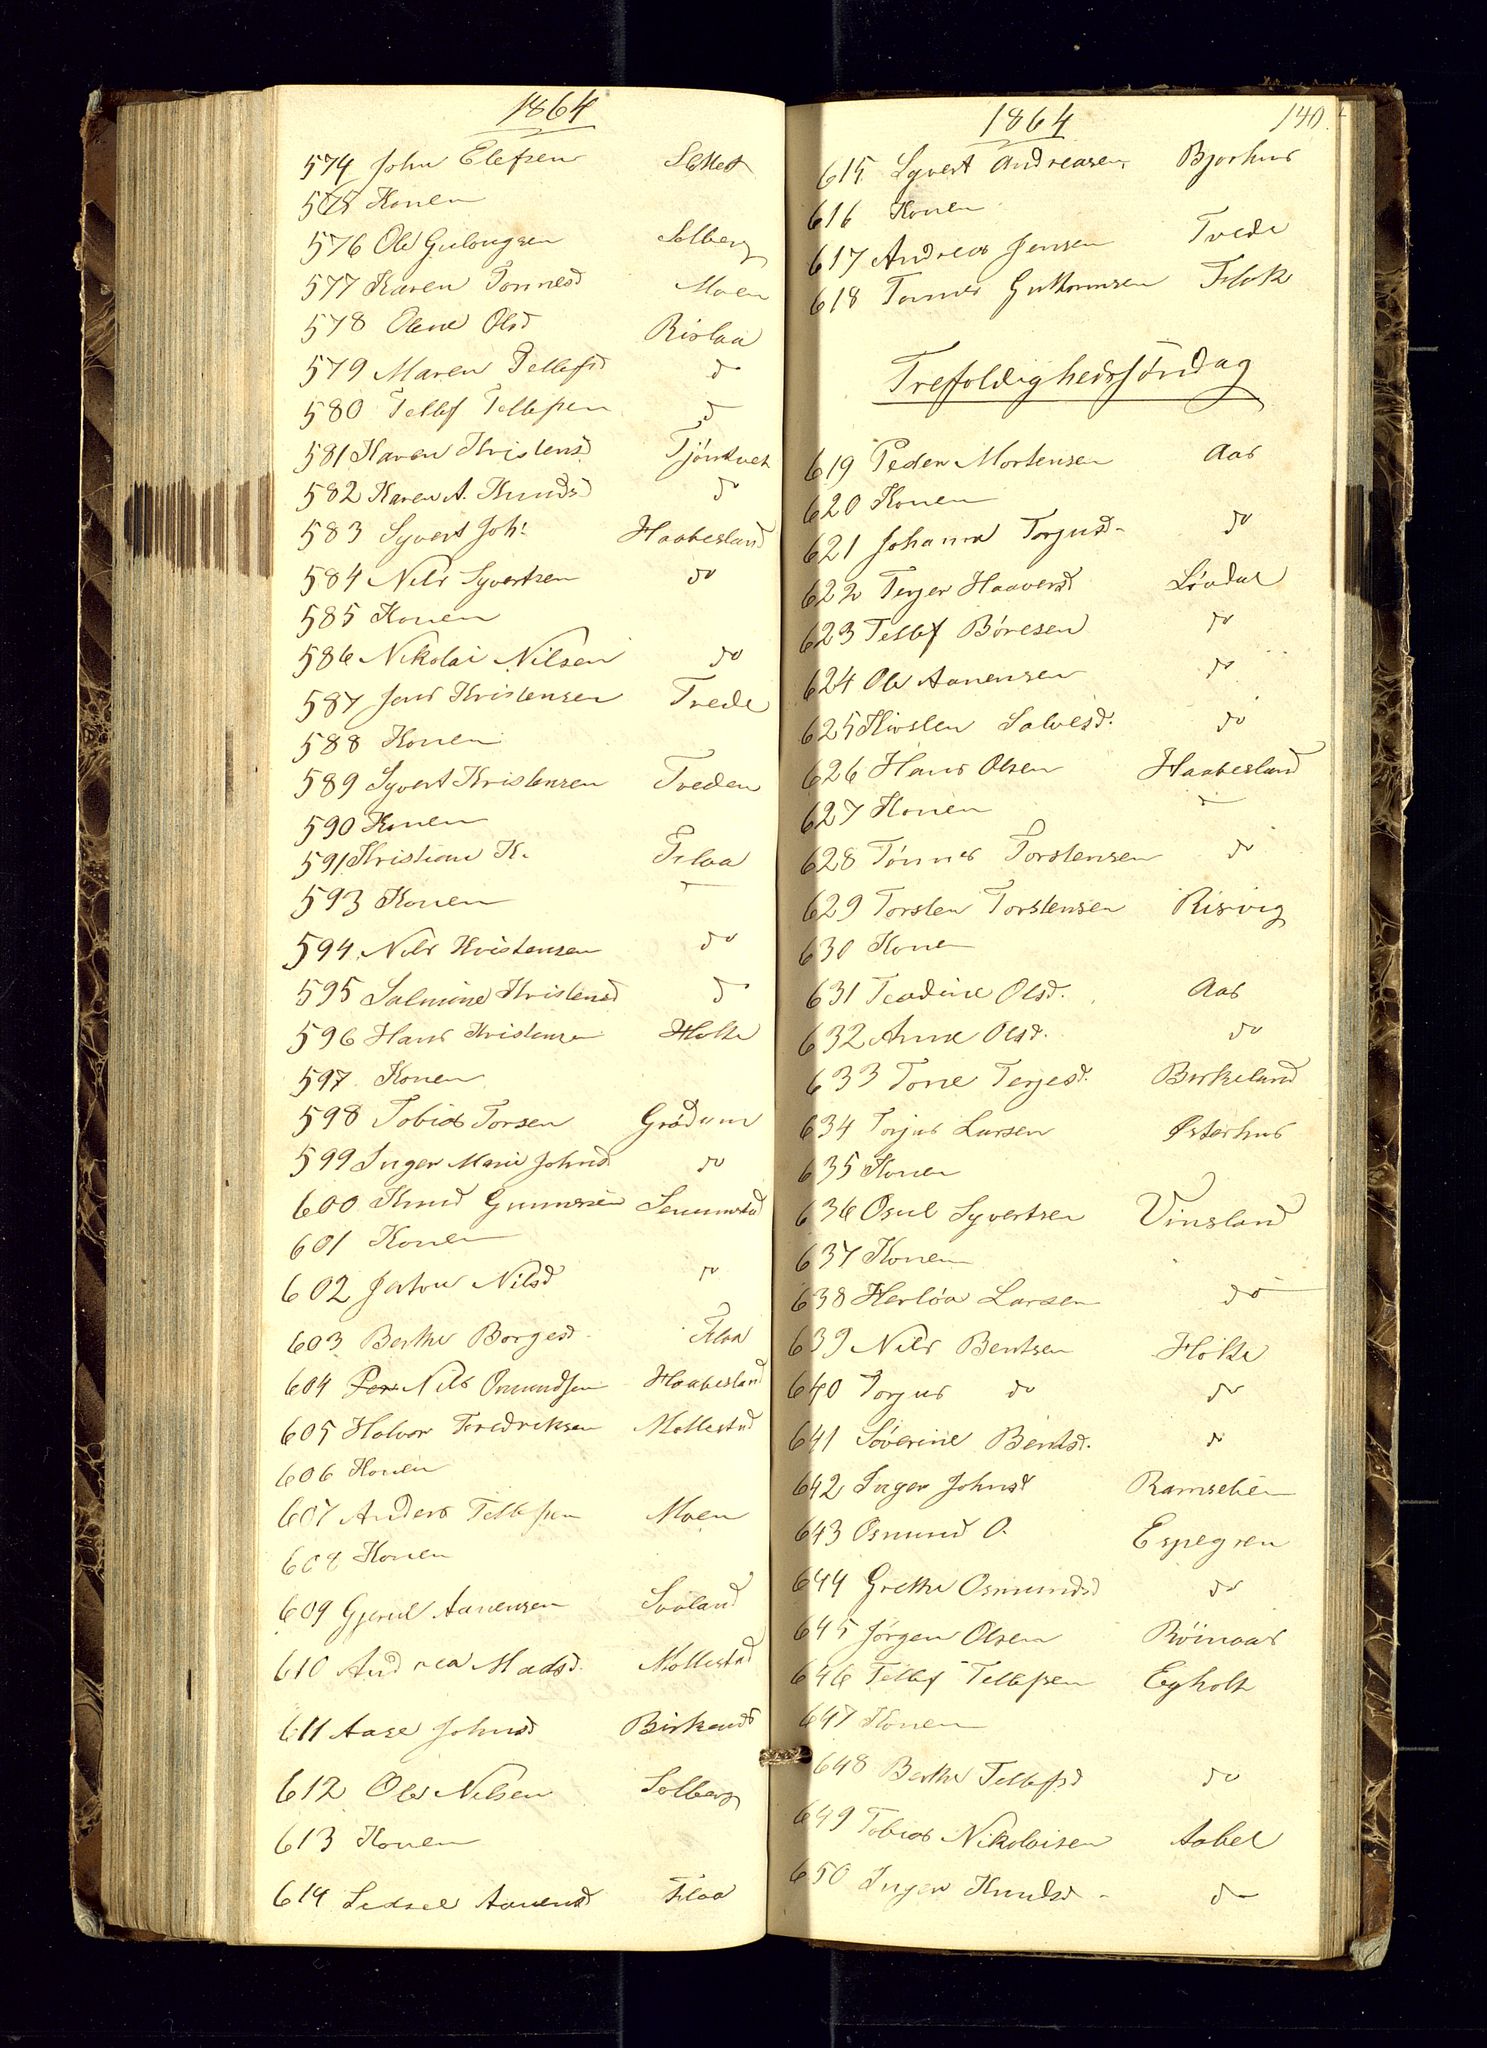 1864
574 John Elefsen
575 Konen
576 Ole Gulougsen Solberg
577 Karen Tønnesd Moen
578 Olene Olsd Rislaa
579 Maren Tellefsd do
580 Tellef Tellefsen do
581 Karen Kristensd Tjöntvet
582 Karen A. Knudsd do
583 Syvert Joh: Haabesland
584 Nils Syvertsen do
585 Konen
586 Nikolai Nilsen do
587 Jens Kristensen Tvede
588 Konen
589 Syvert Kristensen Tveden
590 Konen
591 Kristian K. Flaa
593 Konen
594 Nils Kristensen do
595 Salmine Kristensd do
596 Hans Kristensen Holte
597 Konen
598 Tobias Torsen Grødum
599 Inger Marie Johnsd do
600 Knud Gunnersen Senumstad
601 Konen
602 Nilsd do
603 Berthe Borgesd Flaa
604 Nils Omundsen Haabesland
605 Halvor Fredriksen Mollestad
606 Konen
607 Anders Tellefsen Moen
608 Konen
609 Gjerul Aanensen Svaland
610 Andrea Madsd. Mollestad
611 Aase Johnsd
612 Ole Nilsen Solberg
613 Konen
614 Sidsel Aanensd Flaa
1864 140
615 Syvert Andreasen Bjorhus
616 Konen
617 Andreas Jensen Tvede
618 Tønnes Guttormsen
Trefoldighedssöndag
619 Peder Mortensen Aas
620 Konen
621 Johanne Torjusd do
622 Terjer Haaversd Løvdal
623 Tellef Böresen do
624 Ole Aanensen do
625 Kirsten Salvesd. do
626 Hans Olsen Haabesland
627 Konen
628 Tönnes Torstensen do
629 Torsten Torstensen Risvig
630 Konen
631 Teodine Olsd. Aas
632 Anne Olsd. do
633 Tone Terjesd. Birkeland
634 Torjus Larsen Østerhus
635 Konen
636 Osul Syvertsen Vinsland
637 Konen
638 Herlöv Larsen do
639 Nils Bentsen Holte
640 Torjus do do
641 Söverine Bentsd. do
642 Inger Johnsd Ramselien
643 Osmund O. Espegren
644 Grethe Osmundsd do
645 Jörgen Olsen Röinaas
646 Tellef Tellefsen Egholt
647 Konen
648 Berthe Tellefsd do
649 Tobias Nikolaisen Aabel
650 Inger Knudsd do